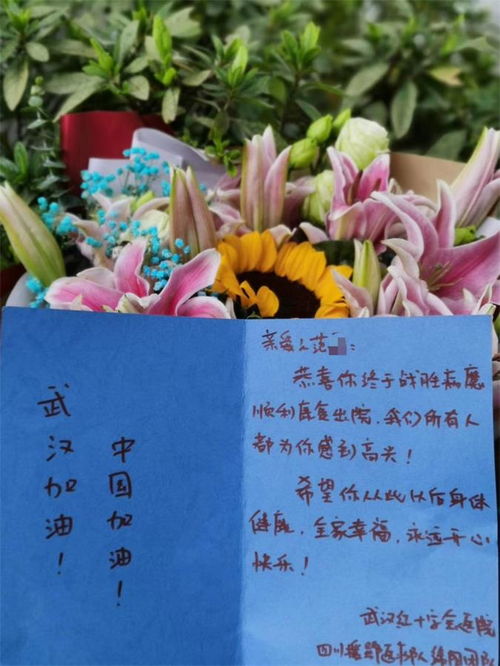 武汉加油！
中国加油！
亲爱的范：
恭喜你终于战胜病魔
顺利康复出院，我们所有人
都为你感到高兴！
希望你从此以后身体
健康，全家幸福，永远开心
快乐！
武汉红十字会医院
四川援鄂医疗队